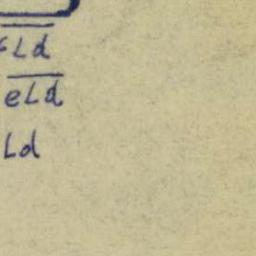 Ld
eLd
Ld